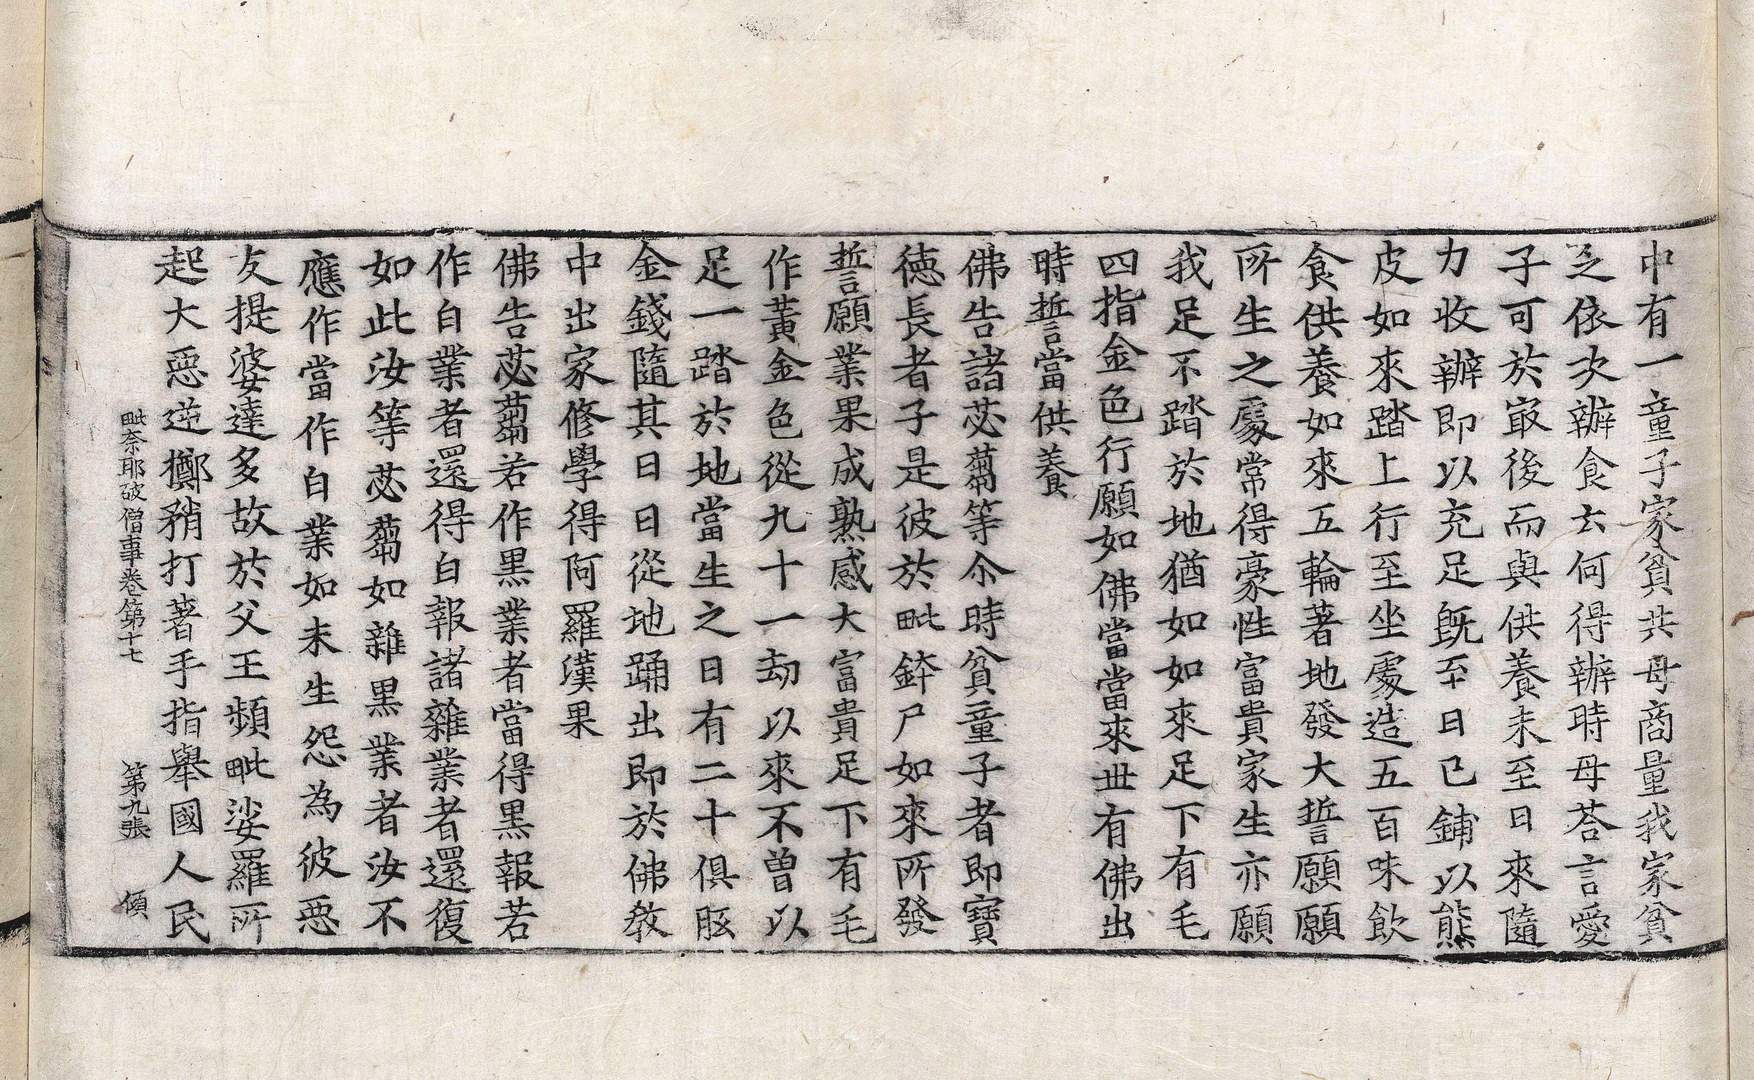 中有一童子家貧共母商量我家貧
乏依次辦食云何得辦時母荅言愛
子可於㝡後而與供養未至日來隨
力收辦即以充足旣至日已鋪以熊
皮如來踏上行至坐處造五百味飲
食供養如來五輪著地發大誓願願
所生之處常得豪性富貴家生亦願
我足不踏於地猶如如來足下有毛
四指金色行願如佛當當來世有佛出
時誓當供養
佛告諸苾蒭等尒時貧童子者即寶
德長者子是彼於毗鉢尸如來所發
誓願業果成熟感大富貴足下有毛
作黃金色從九十一劫以來不曾以
足一踏於地當生之日有二十俱胝
金錢隨其日日從地踊出即於佛敎
中出家修學得阿羅漢果
佛告苾蒭若作黑業者當得黑報若
作白業者還得白報諸雜業者還復
如此汝等苾蒭如雜黑業者汝不
應作當作白業如未生怨為彼惡
友提婆達多故於父王頻毗娑羅所
起大惡逆擲矟打著手指舉國人民
毗奈耶破僧事卷第十七 第九張 傾